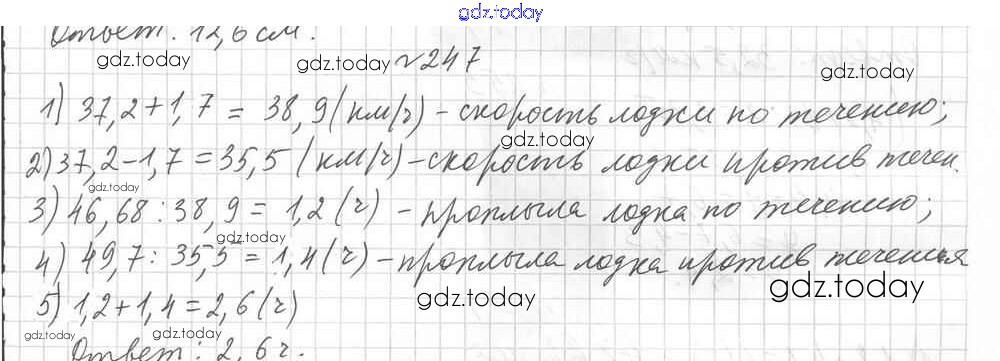 gdz.today
Ответ: 12,6 см.
gdz.today gdz.today №247 gdz.today
1) 37,2+1,7 = 38,9 (км/ч) - скорость лодки по течению;
gdz.today
2) 37,2-1,7 = 35,5 (км/ч) - скорость лодки против течен.
gdz.today
3) 46,68 : 38,9 = 1,2 (ч) - проплыла лодка по течению;
gdz.today
4) 49,7 : 35,5 = 1,4 (ч) - проплыла лодка против теченья
gdz.today gdz.today
5) 1,2+1,4=2,6 (ч)
gdz.today gdz.today gdz.today
Ответ: 2,6 ч.